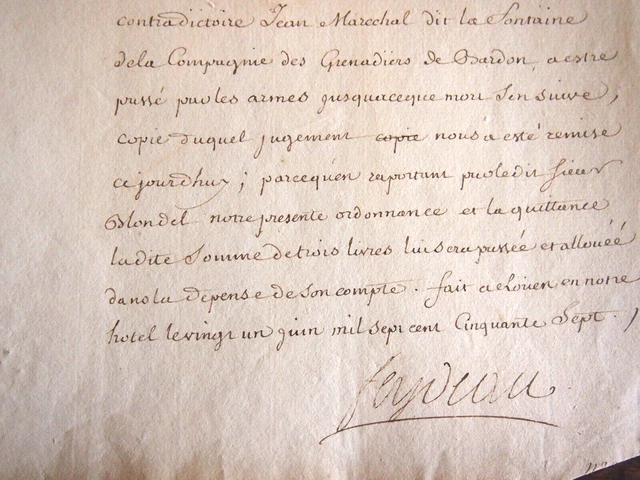 contradictoire Jean Marechal dit la Fontaine
dela Compagnie des Grenadiers de Bardon, a estre
passé par les armes jusquaceque mort s'en suive,
copie duquel jugement copie nous a esté remise
cejourdhuy; parcequ'en raportant par ledit sieur
Blondel notre presente ordonnance et la quittance
ladite somme de trois livres lui sera passée et allouéé
dans la depense de son compte. fait a Rouen en notre
hotel le vingt un juin mil sept cent Cinquante Sept.
feydeau